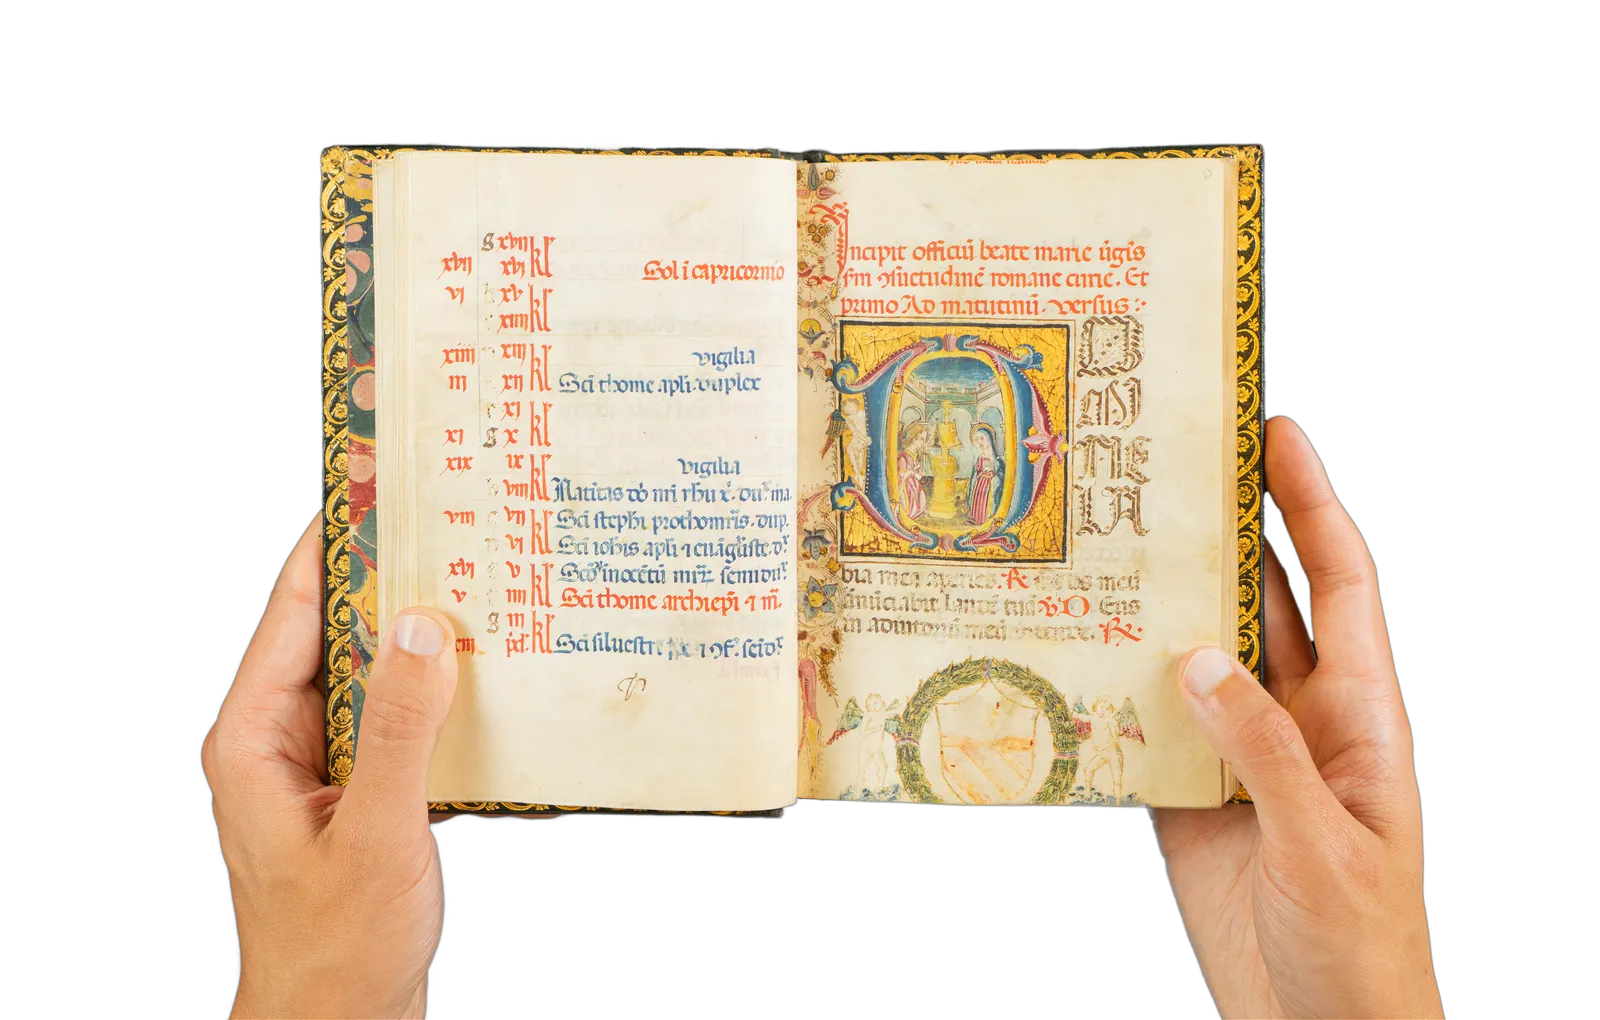 g xvii kl
xvii xvi Sol i capricornio
vi b xv kl
xiiii
xiii xiii kl vigilia
iii xii Sci thome apli. duplex
xi kl
xi g x
xix ix kl vigilia
b viii Natitas dñi mi yhu x. dux ma.
viii c vii kl Sci stephi prothomris. dup.
vi Sci iohis apli ⁊ euãgliste. dx
xvi v kl Scõ inocẽtũ mrz semidux
v iiii Sci thome archiepi ⁊ m.
g iii kl
pd. Sci siluestri
Incipit officiũ beate marie ũgis
sm ɔsuetudinẽ romane curie. Et
primo Ad matutinũ. versus:
D
OMI
NE
LA
bia mea aperies. ℟ Et os meũ
anũciabit laudẽ tuã ℣ D Eus
in adiutoriũ meũ intende. ℟